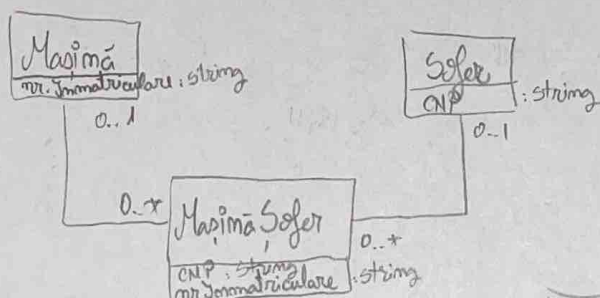 Mașină
nr. Immatriculare : string
0..1
Șofer
CNP : string
0..1
0..*
Mașină Șofer
0..*
CNP : string
nr Immatriculare : string